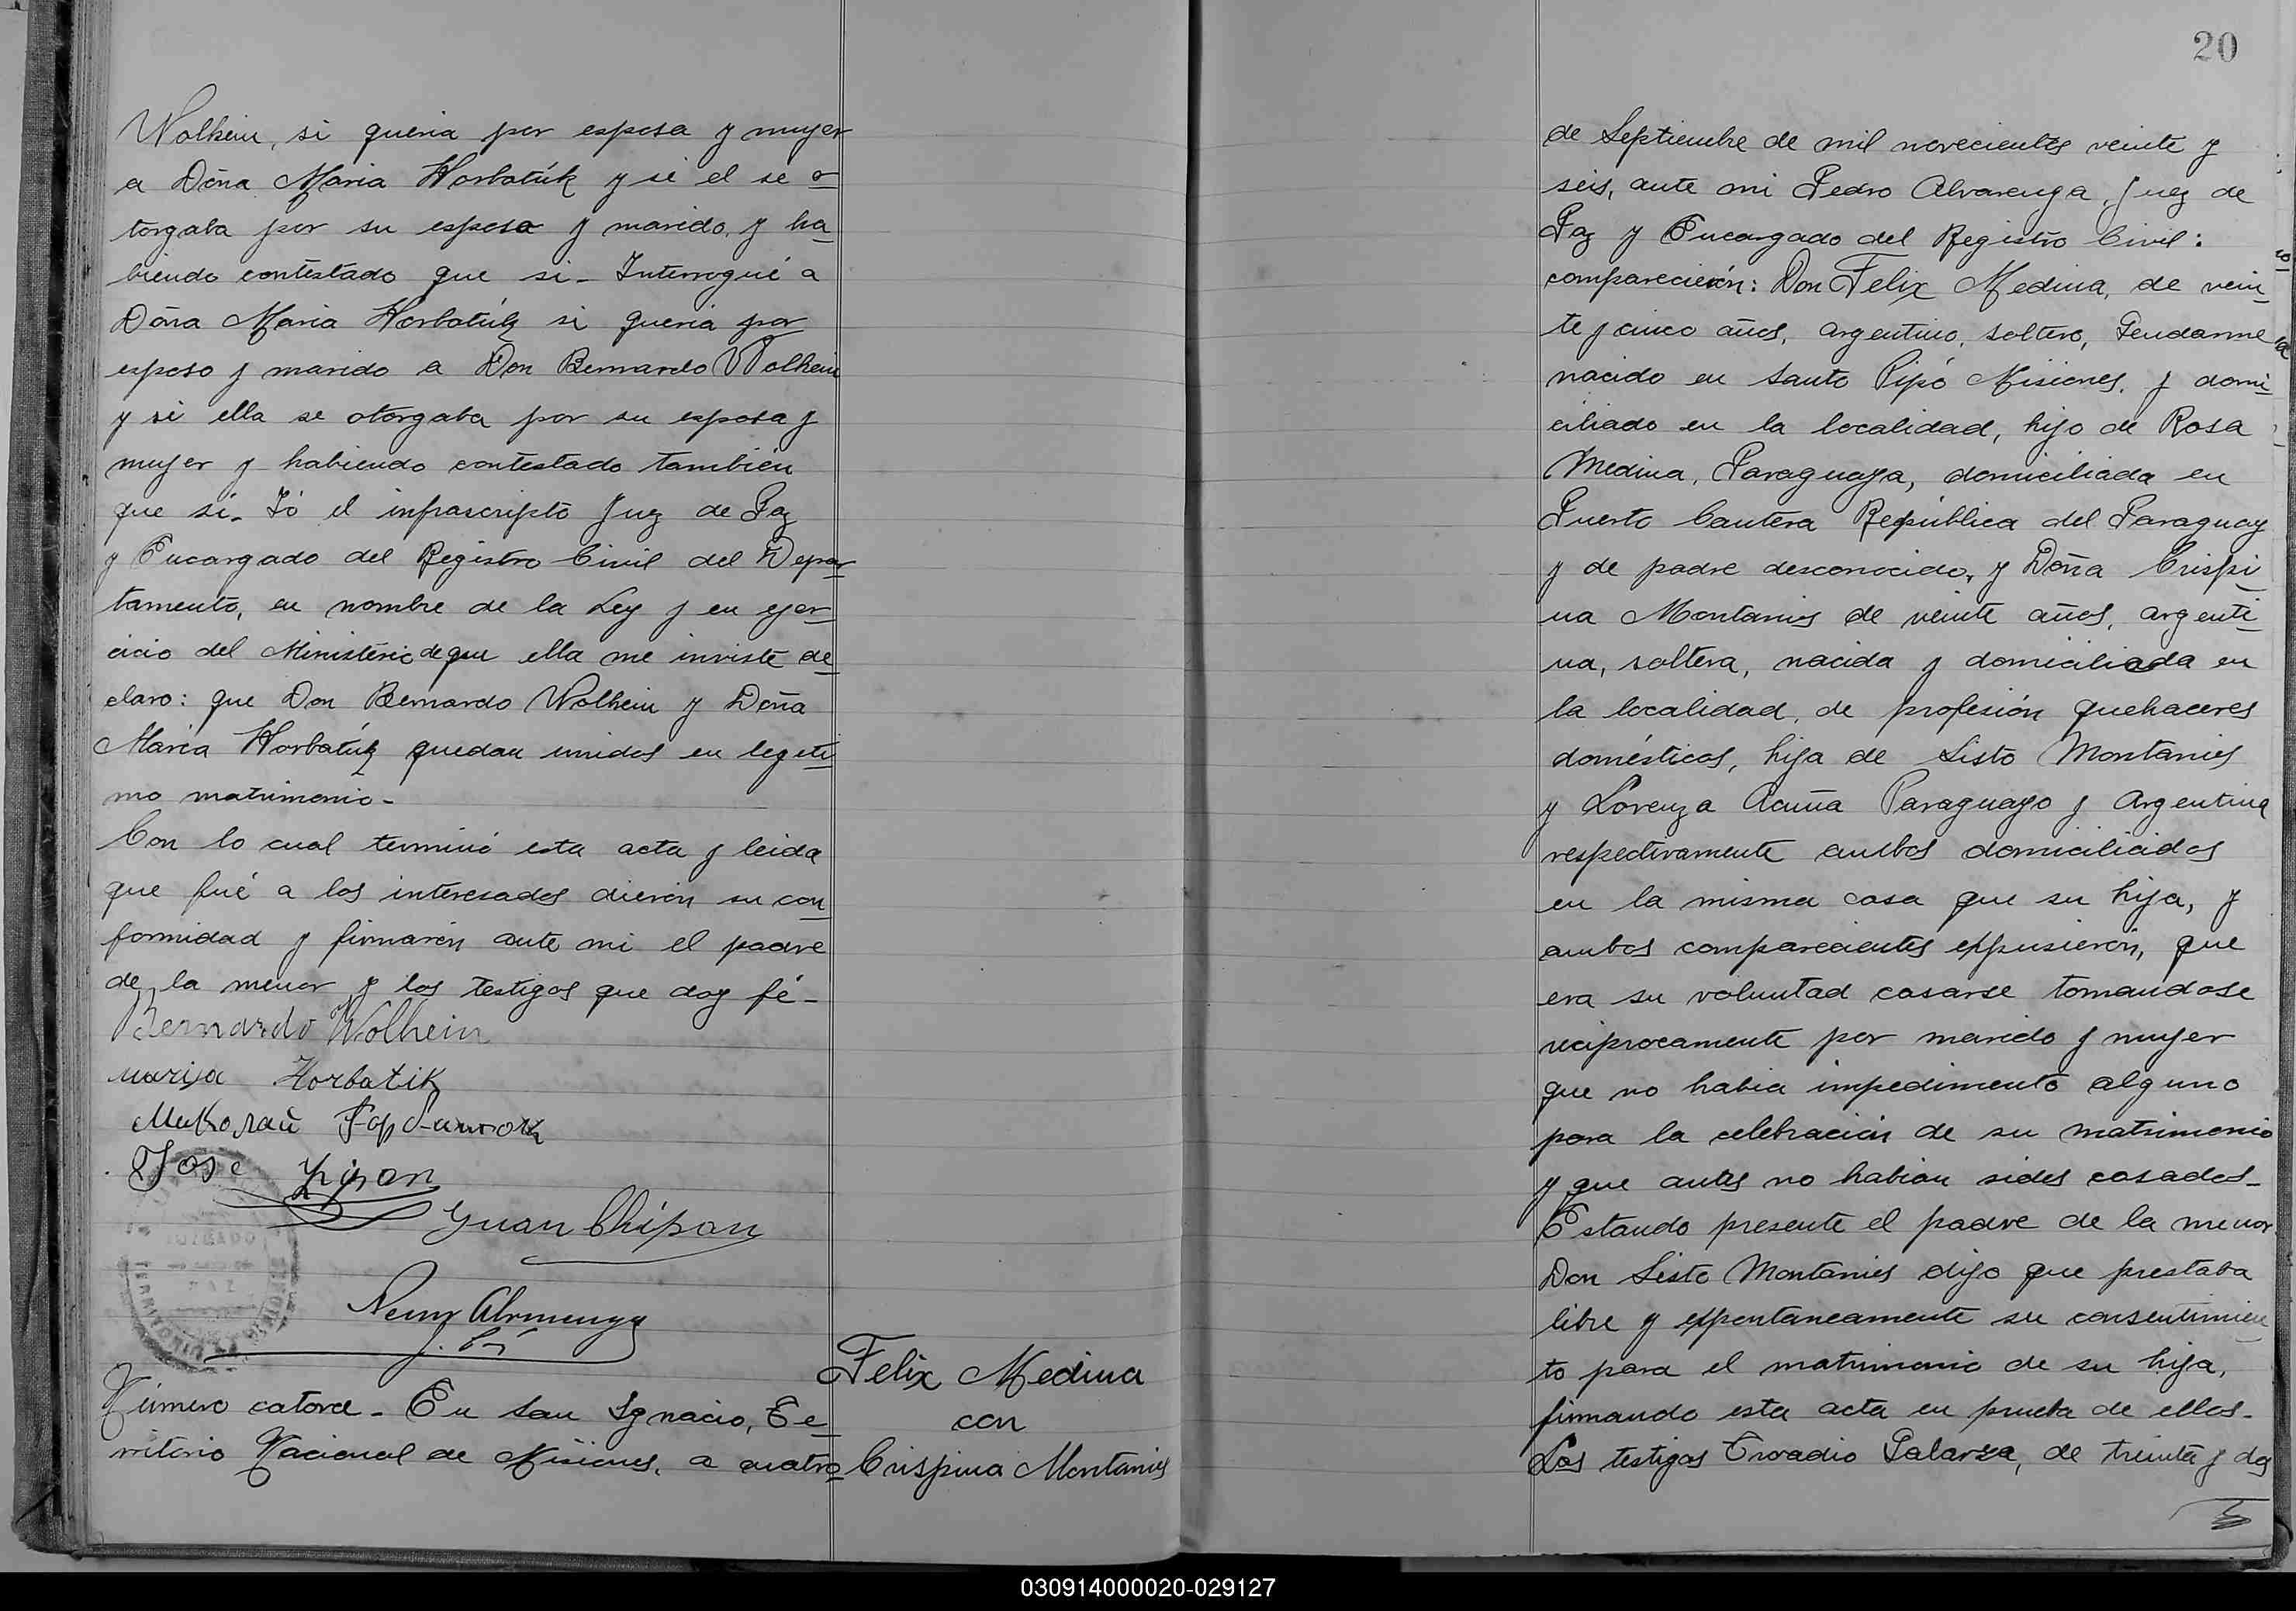 Wolhein, si queria por esposa y mujer
a Doña Maria Horbatúk y si el se o
torgaba por su esposo y marido, y ha
biendo contestado que si - Interrogué a
Doña Maria Horbatúk si queria por
esposo y marido a Don Bernardo Wolhein
y si ella se otorgaba por su esposa y
mujer y habiendo contestado también
que si. Yó el infrascripto Juez de Paz
y Encargado del Registro Civil del Depar
tamento, en nombre de la Ley y en ejer
cicio del Ministerio de que ella me inviste de
claro: que Don Bernardo Wolhein y Doña
Maria Horbatúk quedan unidos en legiti
mo matrimonio -
Con lo cual terminó esta acta y leida
que fué a los interesados dierón su con
formidad y firmarón ante mi el padre
de la menor y los testigos que doy fé -
Bernardo Wolhein
Marija Horbatik
Миколай
Jose
Juan Chipan
JUZGADO
PAZ
Número catorce - En San Ignacio, Te
rritorio Nacional de Misiones, a cuatro
Felix Medina
con
Crispina Montanies
20
de Septiembre de mil novecientos veinte y
seis, ante mi Pedro Alvarenga, Juez de
Paz y Encargado del Registro Civil:
comparecierón: Don Felix Medina, de vein
te y cinco años, argentino, soltero, Gendarme
nacido en Santo Pipó Misiones, y domi
ciliado en la localidad, hijo de Rosa
Medina, Paraguaya, domiciliada en
Puerto Cantera República del Paraguay
y de padre desconocido, y Doña Crispi
na Montanies de veinte años, argenti
na, soltera, nacida y domiciliada en
la localidad, de profesión quehaceres
domésticos, hija de Sisto Montanies
y Lorenza Acuña Paraguayo y Argentina
respectivamente ambos domiciliados
en la misma casa que su hija, y
ambos comparecientes expusierón, que
era su voluntad casarse tomandose
reciprocamente por marido y mujer
que no habia impedimento alguno
para la celebración de su matrimonio
y que antes no habian sidos casados -
Estando presente el padre de la menor
Don Sisto Montanies dijo que prestaba
libre y expontaneamente su consentimien
to para el matrimonio de su hija,
firmando esta acta en prueba de ellos -
Los testigos Trvadio Palarza, de treinta y dos
030914000020-029127